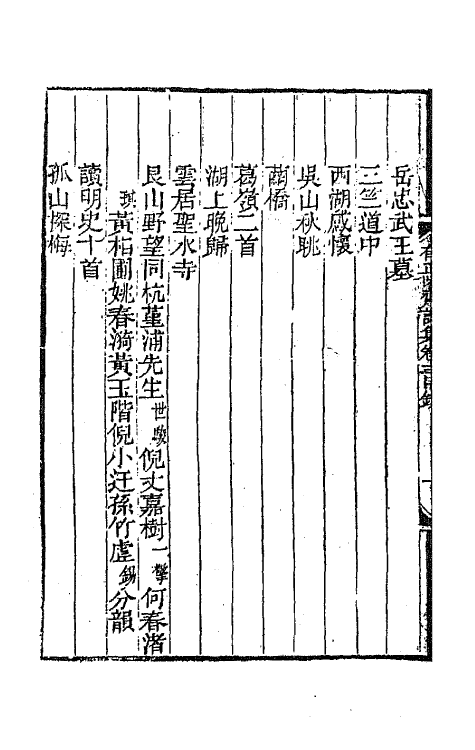 岳忠武王墓
三竺道中
西湖感懷
吳山秋眺
葛嶺二首
湖上晚歸
雲居聖水寺
艮山野望同杭堇浦先生世駿倪丈嘉樹一擎何春渚
琪黃柘圃姚春漪黃玉階倪小迂孫竹虛錫分韻
讀明史十首
孤山探梅